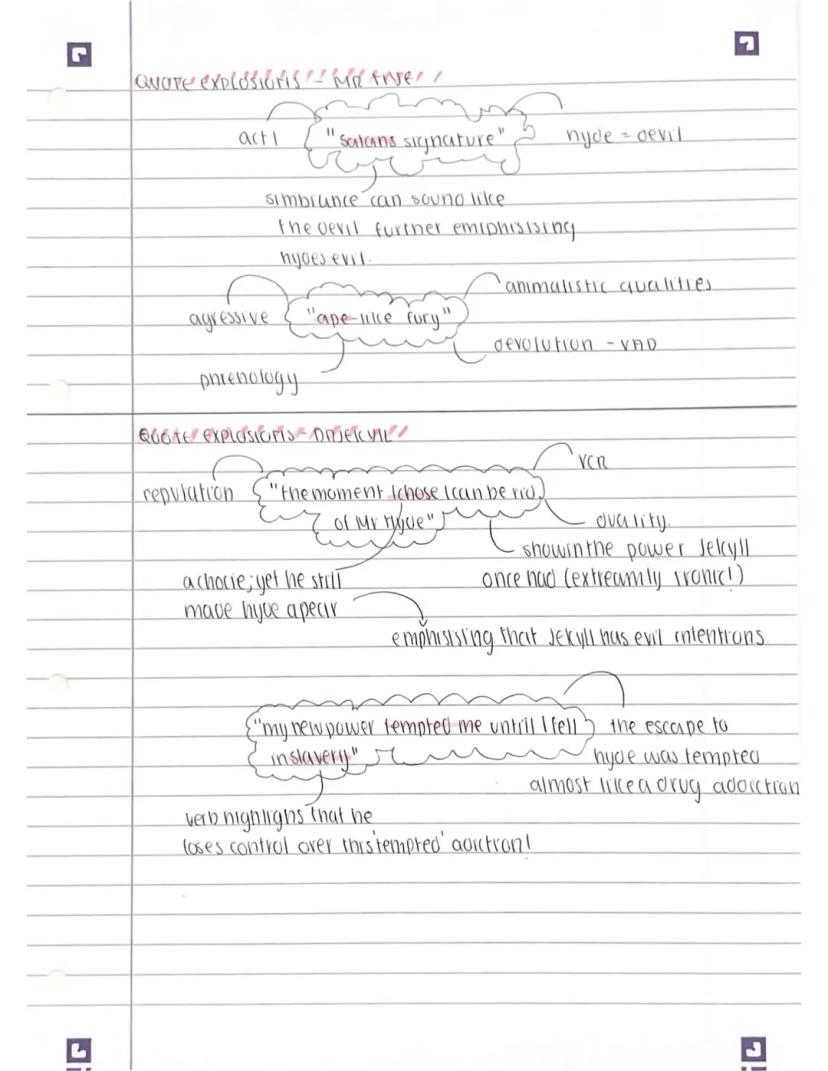 QUOTE EXPLOSIONS - MR HYDE
act 1 "Satans signature" hyde = devil
simbrance can sound like
the devil further emphisising
hydes evil.
animalistic qualities
agressive "ape-like fury"
devolution - VAD
phrenology
QUOTE EXPLOSIONS - DR JEKYLL
VCR
reputation "the moment I chose I can be rid
of Mr Hyde" duality.
showin the power Jekyll
a chocie; yet he still once had (extreamly ironic!)
made hyde apear
emphisising that Jekyll has evil intentions
"my new power tempted me untill I fell the escape to
in slavery" hyde was tempted
almost like a drug addiction
verb highlighs that he
loses control over this 'tempted' addiction!